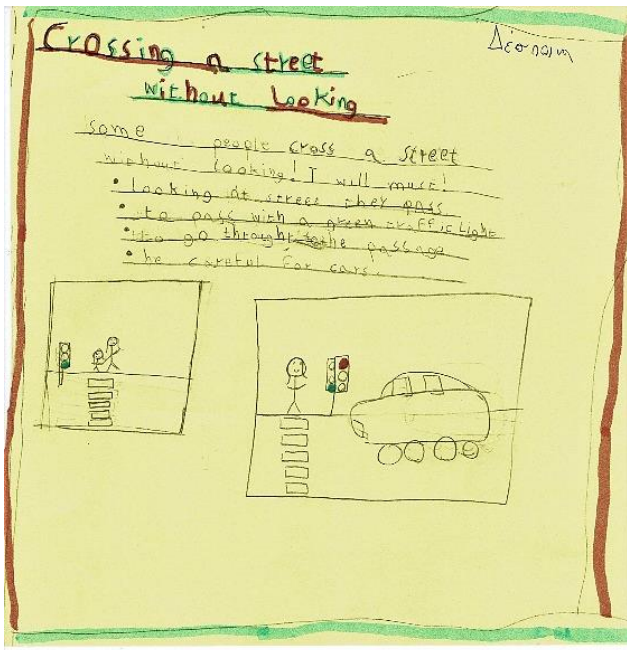 Crossing a street
Δέσποινα
without Looking
some people cross a street
without looking! I will must!
• looking at street they pass
• to pass with a green traffic light
• to go throught the passage
• be careful for cars.